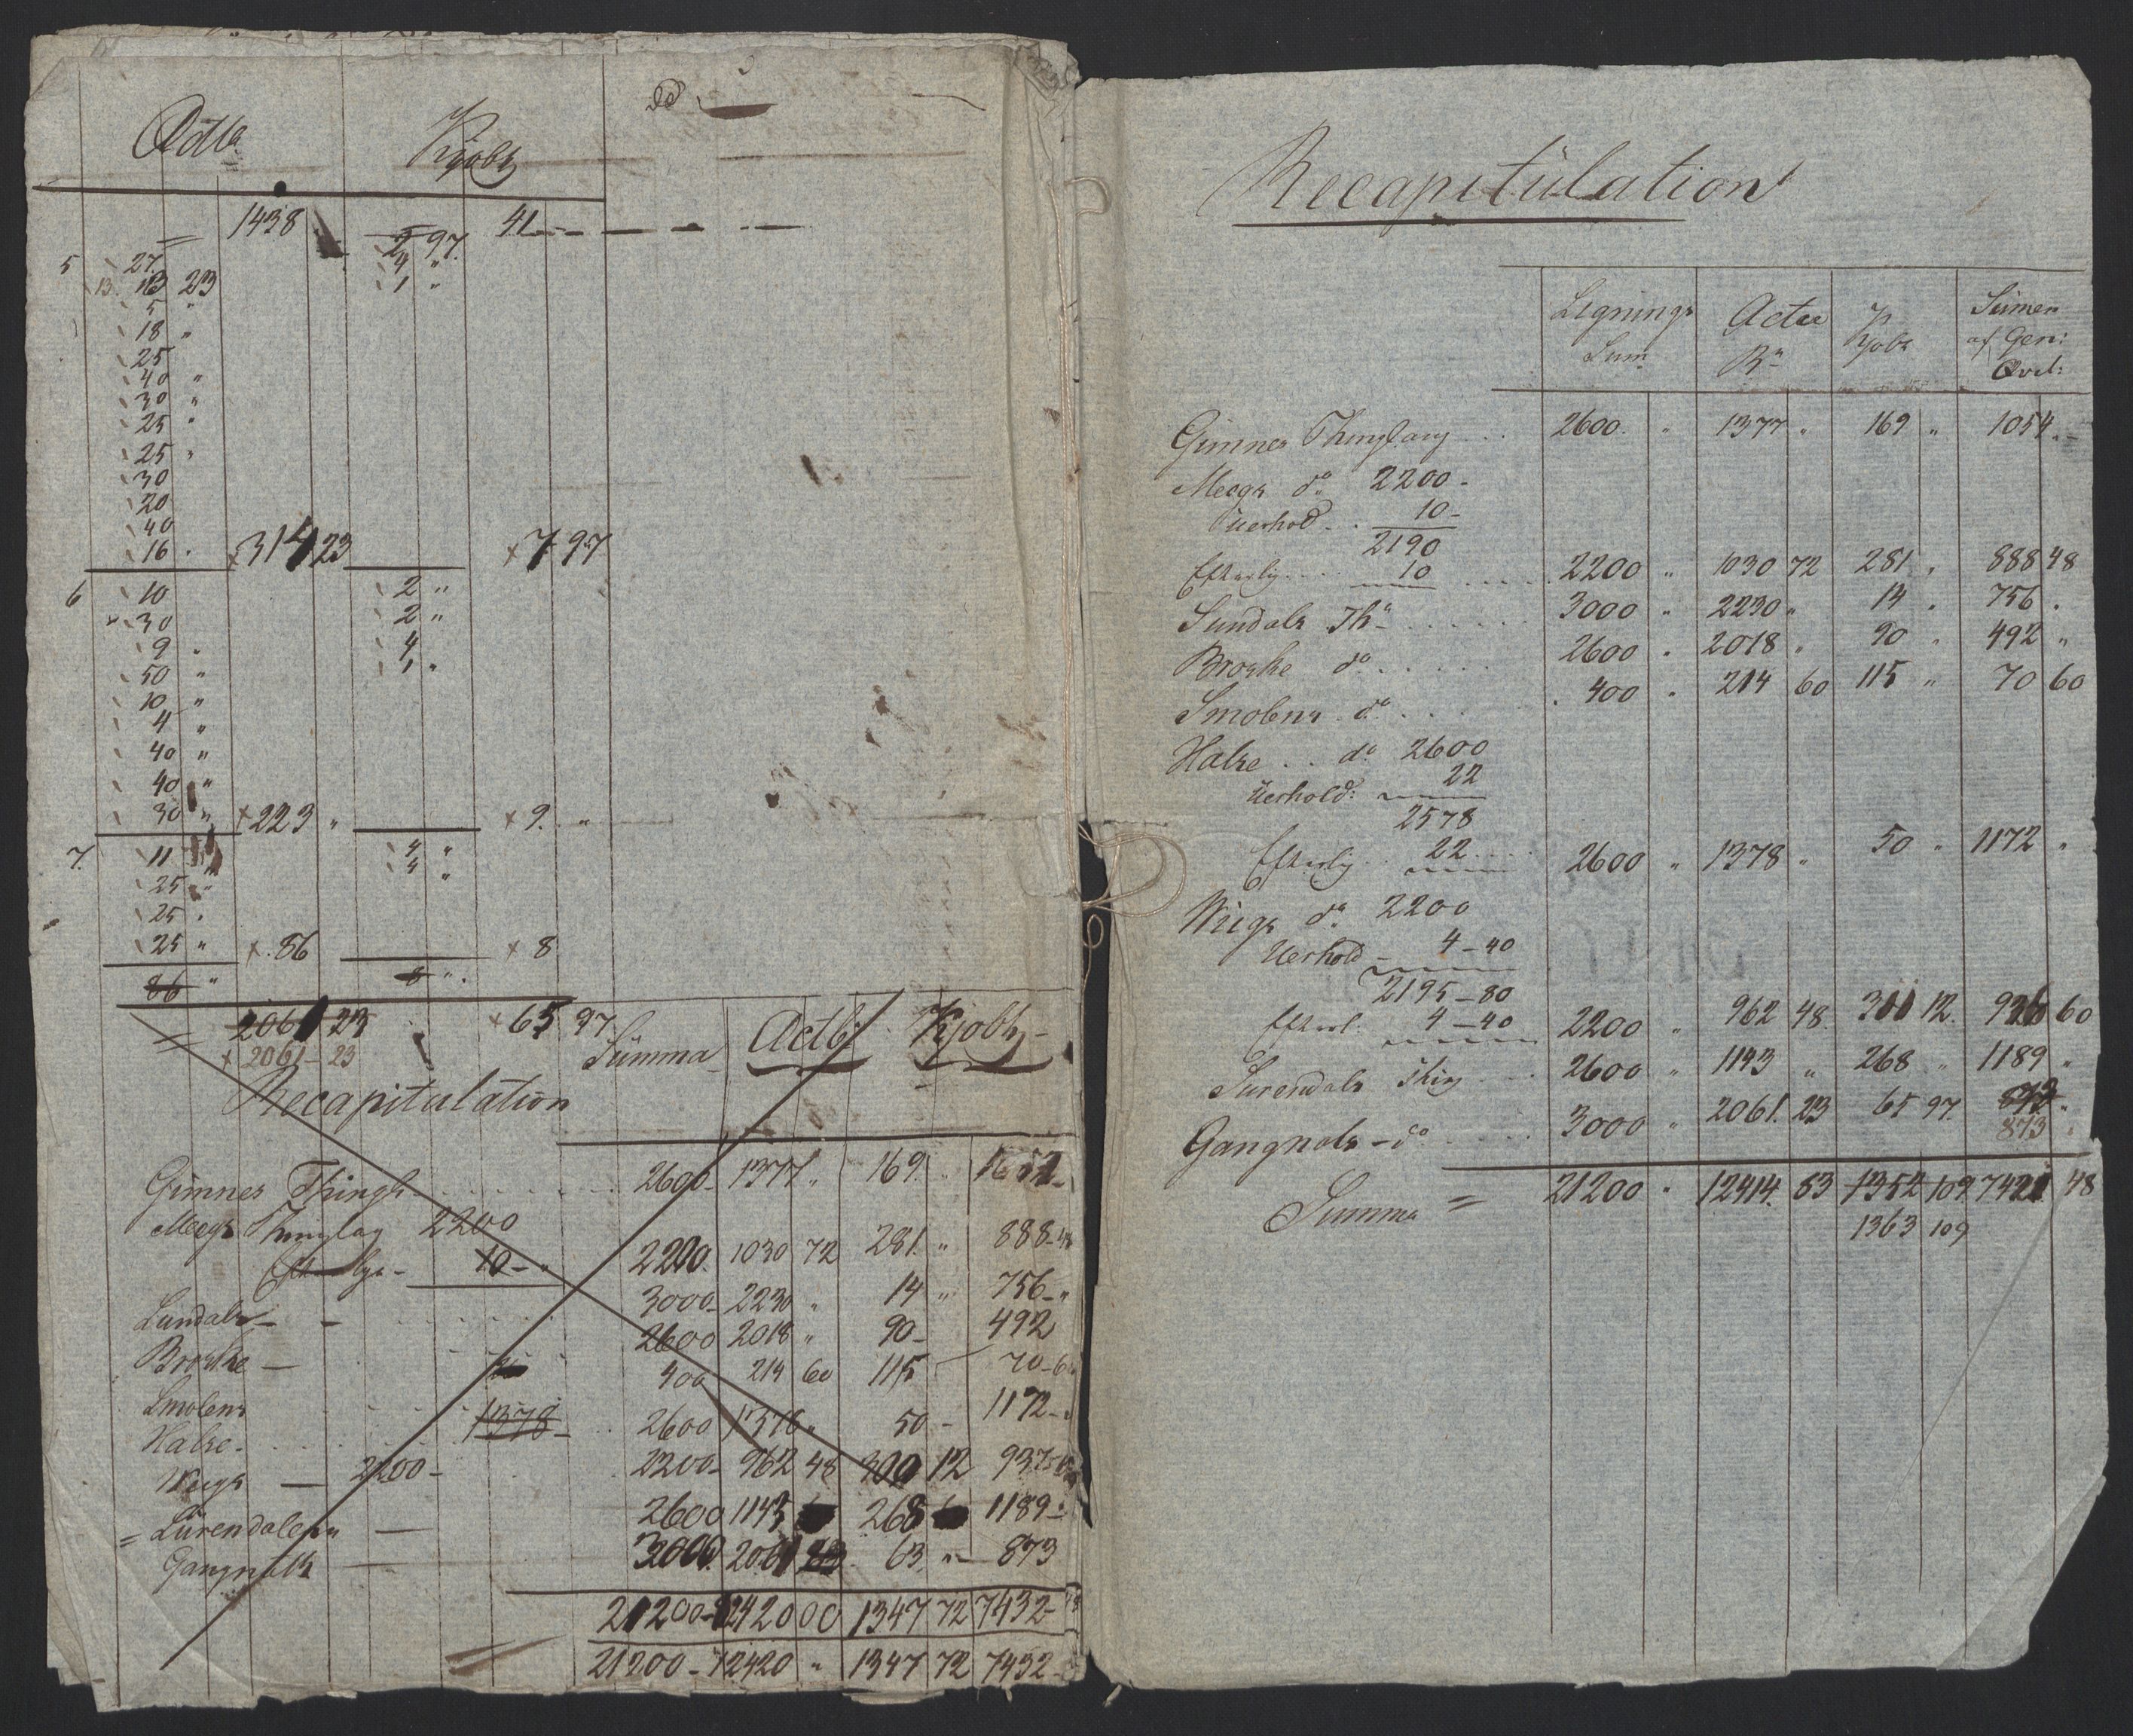 Actb. Kjøbs
= 1438 297. 41
5 27. 4 "
13. 13 23 1 "
5 "
18 "
25
40 "
30 "
25 "
25 "
30
20
40
16 . × 314 23 × 7 97
6 10 2 "
30 2 "
9 " 4
50 " 1 "
10 "
4 "
40 "
40 "
30 " × 223 " × 9. "
7. 11 " 4 "
25 " 4 "
25 .
25 " × 86 × 8
86 " 8 "
= 2061 23 × 65 97
× 2061-23
Recapitulation Summa Actb. Kjøbs
Gimnes Thingl. 2600 1377 " 169. 1054
Meegs Thinglag 2200
Efterlyr - 10 - " 2200. 1030 72 281. " 888-48
Sundals - 3000 2230 " 14 " 756-"
Broske - 2600 2018 " 90 - 492
Smolens 400 214 60 115 70-60
Halse. 1378 2600 1378 " 50 - 1172-"
Wiigs - 2200 - 2200- 962 48 300 12 937
= Surendalens - 2600 1143 268 1189-"
Gangnals 3000. 2061 23 63. " 873
21200 - 12420 00 1347 72 7432-
21200 - 12420 " 1347 72 7432-
Recapitulation
Lignings Sum. Actee Rn Kjøbs Sumen af Gen: Qvel:
Gimnes Thinglaug . . . 2600. " 1377 " 169 " 1054 "
Meegs do 2200 -
Uerhold . . 10 -
2190
Efterlig . . . . 10 . . . . 2200 " 1030 72 281 " 888 48
Sundals Th. . . . . . . 3000 " 2230 " 14 " 756 .
Broske do . . . . . 2600 " 2018 " 90 " 492 "
Smolens . do . . . 400 " 214 60 115 " 70 60
Halse . . do 2600
Uerhold: 22
2578
Efterlig . . 22 . . . . 2600 " 1378 " 50 " 1172 "
Wiigs do 2200
Uerhold - 4-40
2195-80
Efterl: 4-40 2200 " 962 48. 300 12. 936 60
Surendals Thing . . . 2600 " 1143 " 268 " 1189 "
Gangnals - do . . . . 3000 " 2061. 23 65 97.
873 "
Summa = 21200 " 12414. 83 1352 109 7421 48
1363 109